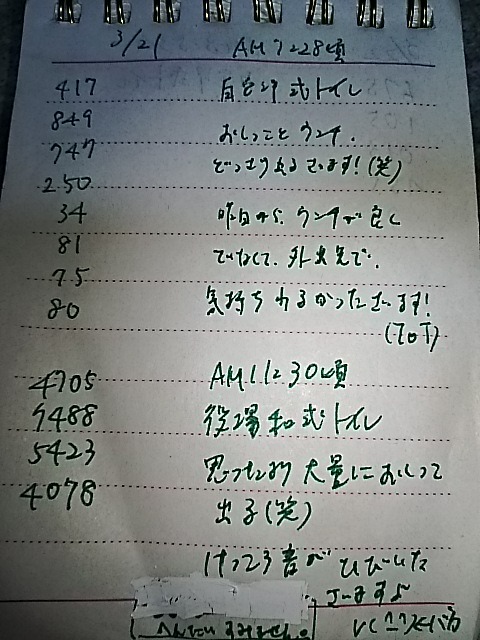 3/21 AM7:28頃
417 自宅洋式トイレ
849 おしっことウンチ、
747 どっさり出るざます!(笑)
250
34 昨日からウンチが良く
81 でなくて、外出先で、
75
80 気持ちわるかったざます!
(ToT)
4705 AM11:30頃
7488 役場和式トイレ
5423 思ったより大量におしっこ
4078 出る(笑)
音がひびいた
ざますよ
へんたいすみません。